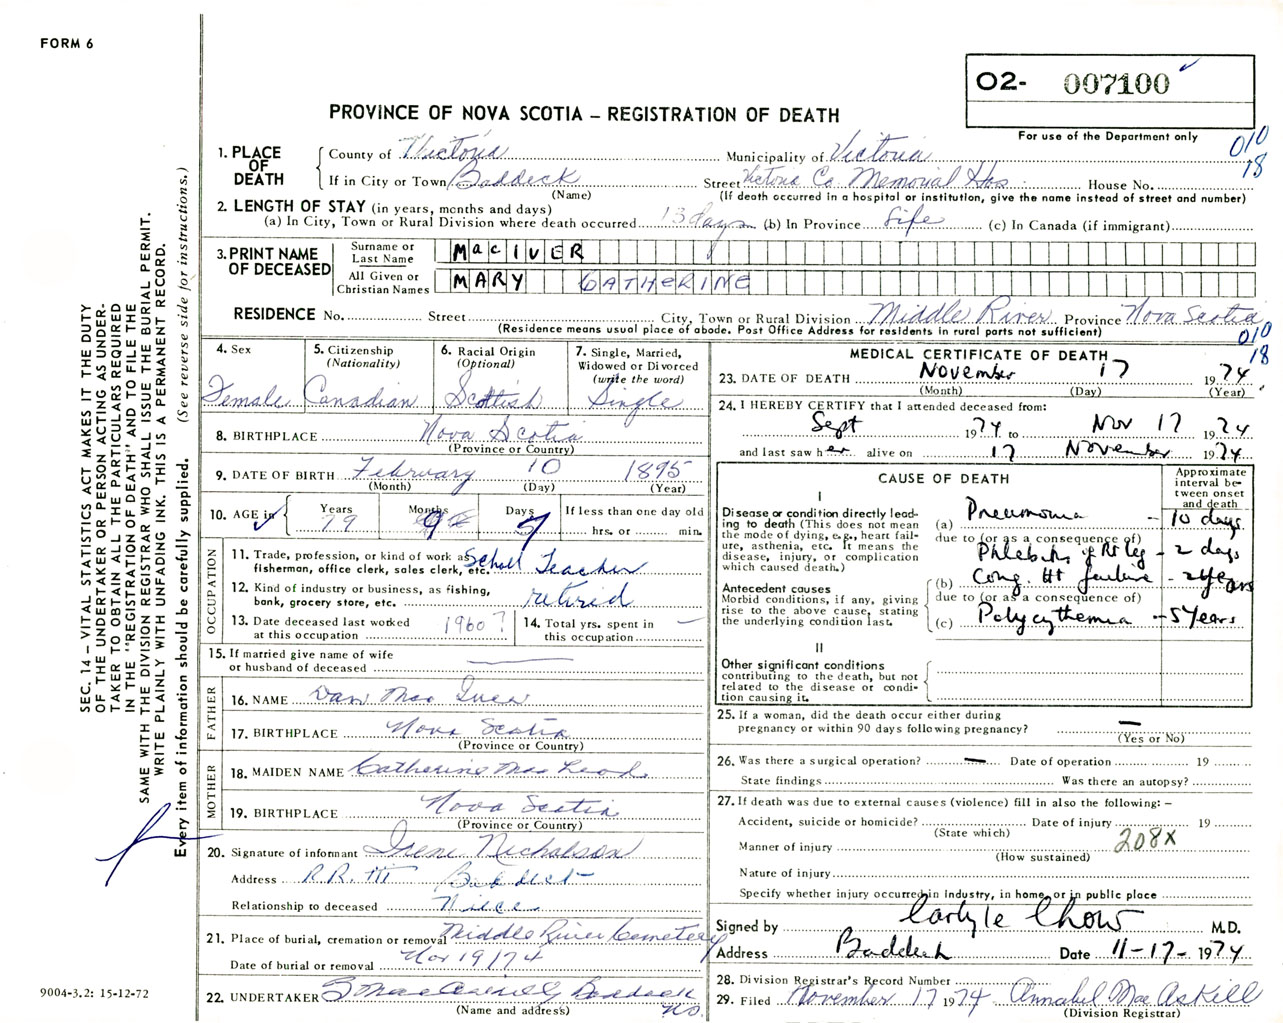 FORM 6
O2- 007100
For use of the Department only
PROVINCE OF NOVA SCOTIA – REGISTRATION OF DEATH
010
18
1. PLACE OF DEATH
County of Victoria Municipality of Victoria
If in City or Town Baddeck Street Victoria Co. Memorial Hos. House No.
(Name) (If death occurred in a hospital or institution, give the name instead of street and number)
2. LENGTH OF STAY (in years, months and days)
(a) In City, Town or Rural Division where death occurred 13 days (b) In Province Life (c) In Canada (if immigrant)
3. PRINT NAME OF DECEASED
Surname or Last Name MacIVER
All Given or Christian Names MARY CATHERINE
RESIDENCE No. Street City, Town or Rural Division Middle River Province Nova Scotia
(Residence means usual place of abode. Post Office Address for residents in rural parts not sufficient)
010
18
4. Sex Female
5. Citizenship (Nationality) Canadian
6. Racial Origin (Optional) Scottish
7. Single, Married, Widowed or Divorced (write the word) Single
8. BIRTHPLACE Nova Scotia
(Province or Country)
9. DATE OF BIRTH February 10 1895
(Month) (Day) (Year)
10. AGE in Years Months Days If less than one day old
79 9 7 hrs. or min.
OCCUPATION
11. Trade, profession, or kind of work as fisherman, office clerk, sales clerk, etc. School Teacher
12. Kind of industry or business, as fishing, bank, grocery store, etc. retired
13. Date deceased last worked at this occupation 1960?
14. Total yrs. spent in this occupation —
15. If married give name of wife or husband of deceased —
FATHER
16. NAME Dan Mac Iver
17. BIRTHPLACE Nova Scotia
(Province or Country)
MOTHER
18. MAIDEN NAME Catherine Mac Leod
19. BIRTHPLACE Nova Scotia
(Province or Country)
20. Signature of informant Irene Nicholson
Address R.R. Baddeck
Relationship to deceased Niece
21. Place of burial, cremation or removal Middle River Cemetery
Date of burial or removal Nov 19/74
22. UNDERTAKER Baddeck NS.
(Name and address)
MEDICAL CERTIFICATE OF DEATH
23. DATE OF DEATH November 17 1974
(Month) (Day) (Year)
24. I HEREBY CERTIFY that I attended deceased from:
Sept 1974 to Nov 17 1974
and last saw her alive on 17 November 1974
CAUSE OF DEATH
Approximate interval between onset and death
I
Disease or condition directly leading to death (This does not mean the mode of dying, e.g., heart failure, asthenia, etc. It means the disease, injury, or complication which caused death.)
(a) Pneumonia – 10 days
due to (or as a consequence of)
Phlebitis of Rt leg – 2 days
Antecedent causes
Morbid conditions, if any, giving rise to the above cause, stating the underlying condition last.
(b) Cong. Ht failure – 2 years
due to (or as a consequence of)
(c) Polycythemia – 5 years
II
Other significant conditions contributing to the death, but not related to the disease or condition causing it.
25. If a woman, did the death occur either during pregnancy or within 90 days following pregnancy? —
(Yes or No)
26. Was there a surgical operation? — Date of operation 19
State findings Was there an autopsy?
27. If death was due to external causes (violence) fill in also the following: –
Accident, suicide or homicide? Date of injury 19
(State which)
208X
Manner of injury
(How sustained)
Nature of injury
Specify whether injury occurred in industry, in home, or in public place
Signed by Carlyle Chow M.D.
Address Baddeck Date 11-17- 1974
28. Division Registrar's Record Number
29. Filed November 17 1974 Annabel Mac Askill
(Division Registrar)
SEC. 14 – VITAL STATISTICS ACT MAKES IT THE DUTY
OF THE UNDERTAKER OR PERSON ACTING AS UNDER-
TAKER TO OBTAIN ALL THE PARTICULARS REQUIRED
IN THE "REGISTRATION OF DEATH" AND TO FILE THE
SAME WITH THE DIVISION REGISTRAR WHO SHALL ISSUE THE BURIAL PERMIT.
WRITE PLAINLY WITH UNFADING INK. THIS IS A PERMANENT RECORD.
Every item of information should be carefully supplied. (See reverse side for instructions.)
9004-3.2: 15-12-72